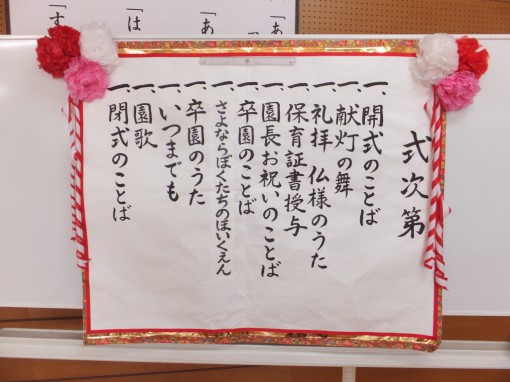 式次第
一、開式のことば
一、献灯の舞
一、礼拝 仏様のうた
一、保育証書授与
一、園長お祝いのことば
一、卒園のことば
一、さよならぼくたちのほいくえん
一、卒園のうた
一、いつまでも
一、園歌
一、閉式のことば
「あ
「あ
「は
「す